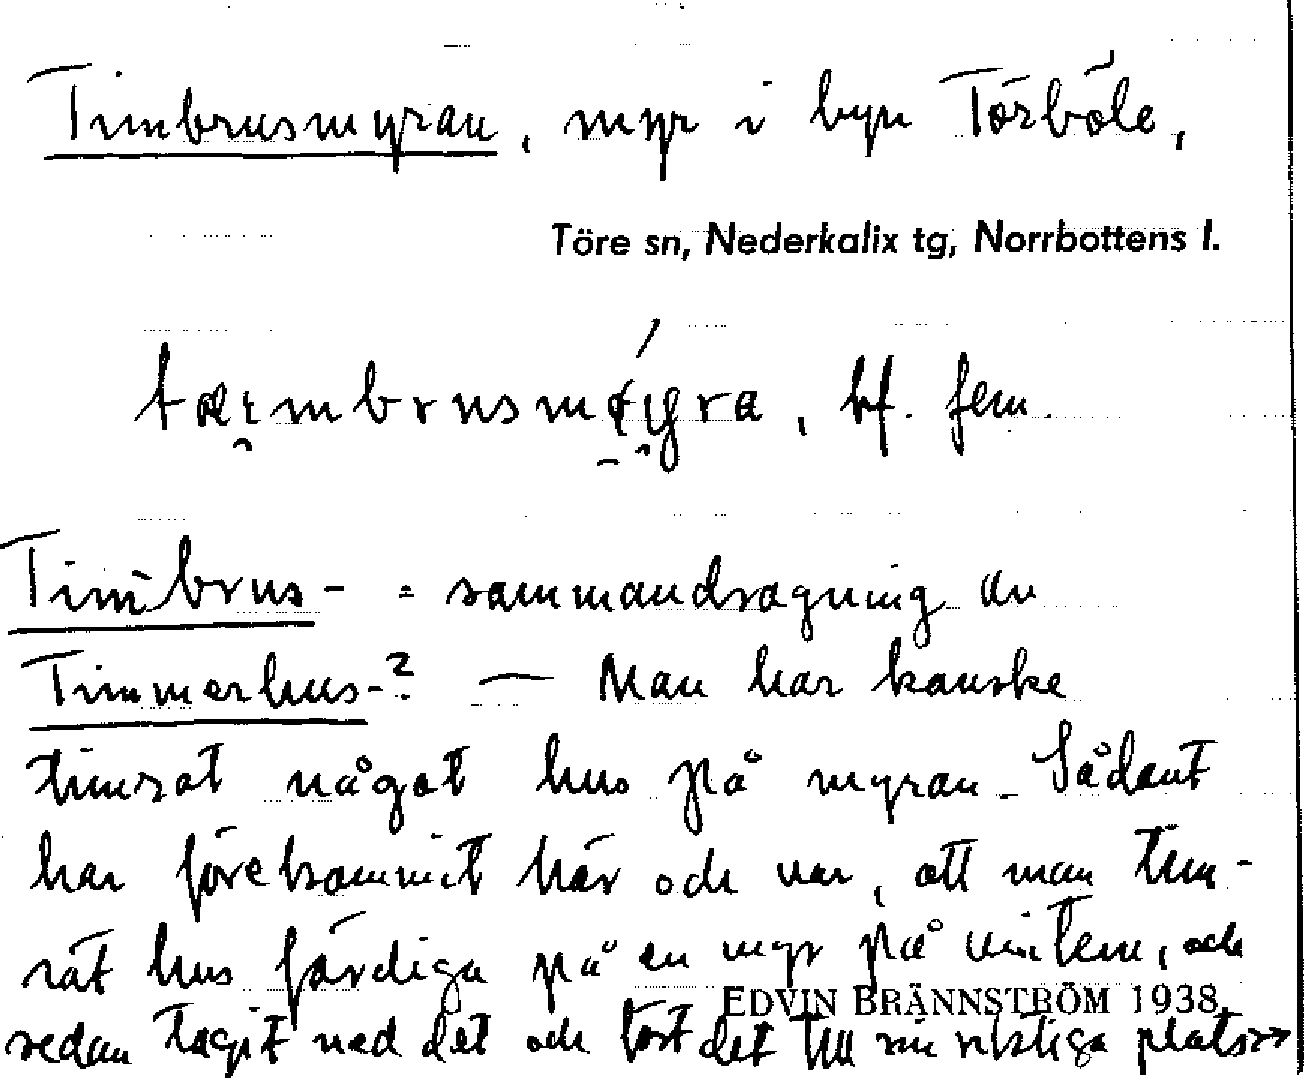 Timbrusmyran, myr i byn Törböle,
Töre sn, Nederkalix tg, Norrbottens l.
bf. fem.
Timbrus- = sammandragning av
Timmerhus-? — Man har kanske
timrat något hus på myran. Sådant
har förekommit här och var, att man tim-
rat hus färdiga på en myr på vintern, och
EDVIN BRÄNNSTRÖM 1938.
sedan tagit ned det och fört det till sin riktiga plats